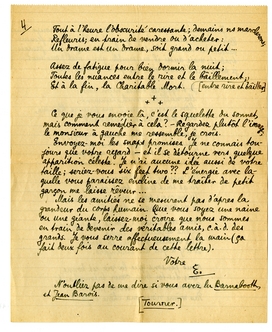 4
Tout à l'heure l'obscurité caressante; demain nos marchands
Defleuris; en train de vendre ou d'acheter.
Un drame est un drame, soit grand ou petit -
Assez de fatigue pour bien dormir la nuit;
Toutes les nuances entre le rire et le bâillement;
Et à la fin, la Charitable Mort. (entre rire et bâiller)
+ + +
Ce que je vous envoie là, c'est le squelette du sonnet,
mais comment remédier à cela? - Regardez plutôt l'image:
le monsieur à gauche me ressemble, je crois.
Envoyez-moi les snaps promises. Je ne connais tou-
jours que votre regard - et il se détourne vers quelque
apparition céleste. Je n'ai aucune idée aussi de votre
taille; seriez-vous six feet two?? L'énergie avec la-
quelle vous paraissez encline de me traiter de petit
garçon me laisse rêveur.
Mais les amitiés ne se mesurent pas d'après la
grandeur du corps humain. Que vous soyez une naine
ou une géante, laissez-moi croire que nous sommes
en train de devenir des véritables amis, c.à.d. des
grands. Je vous serre affectueusement la main (ça
fait deux fois au courant de cette lettre).
Votre
E.
N'oubliez pas de me dire si vous avez lu Barnabooth,
et Jean Barois.
[Tourner.]